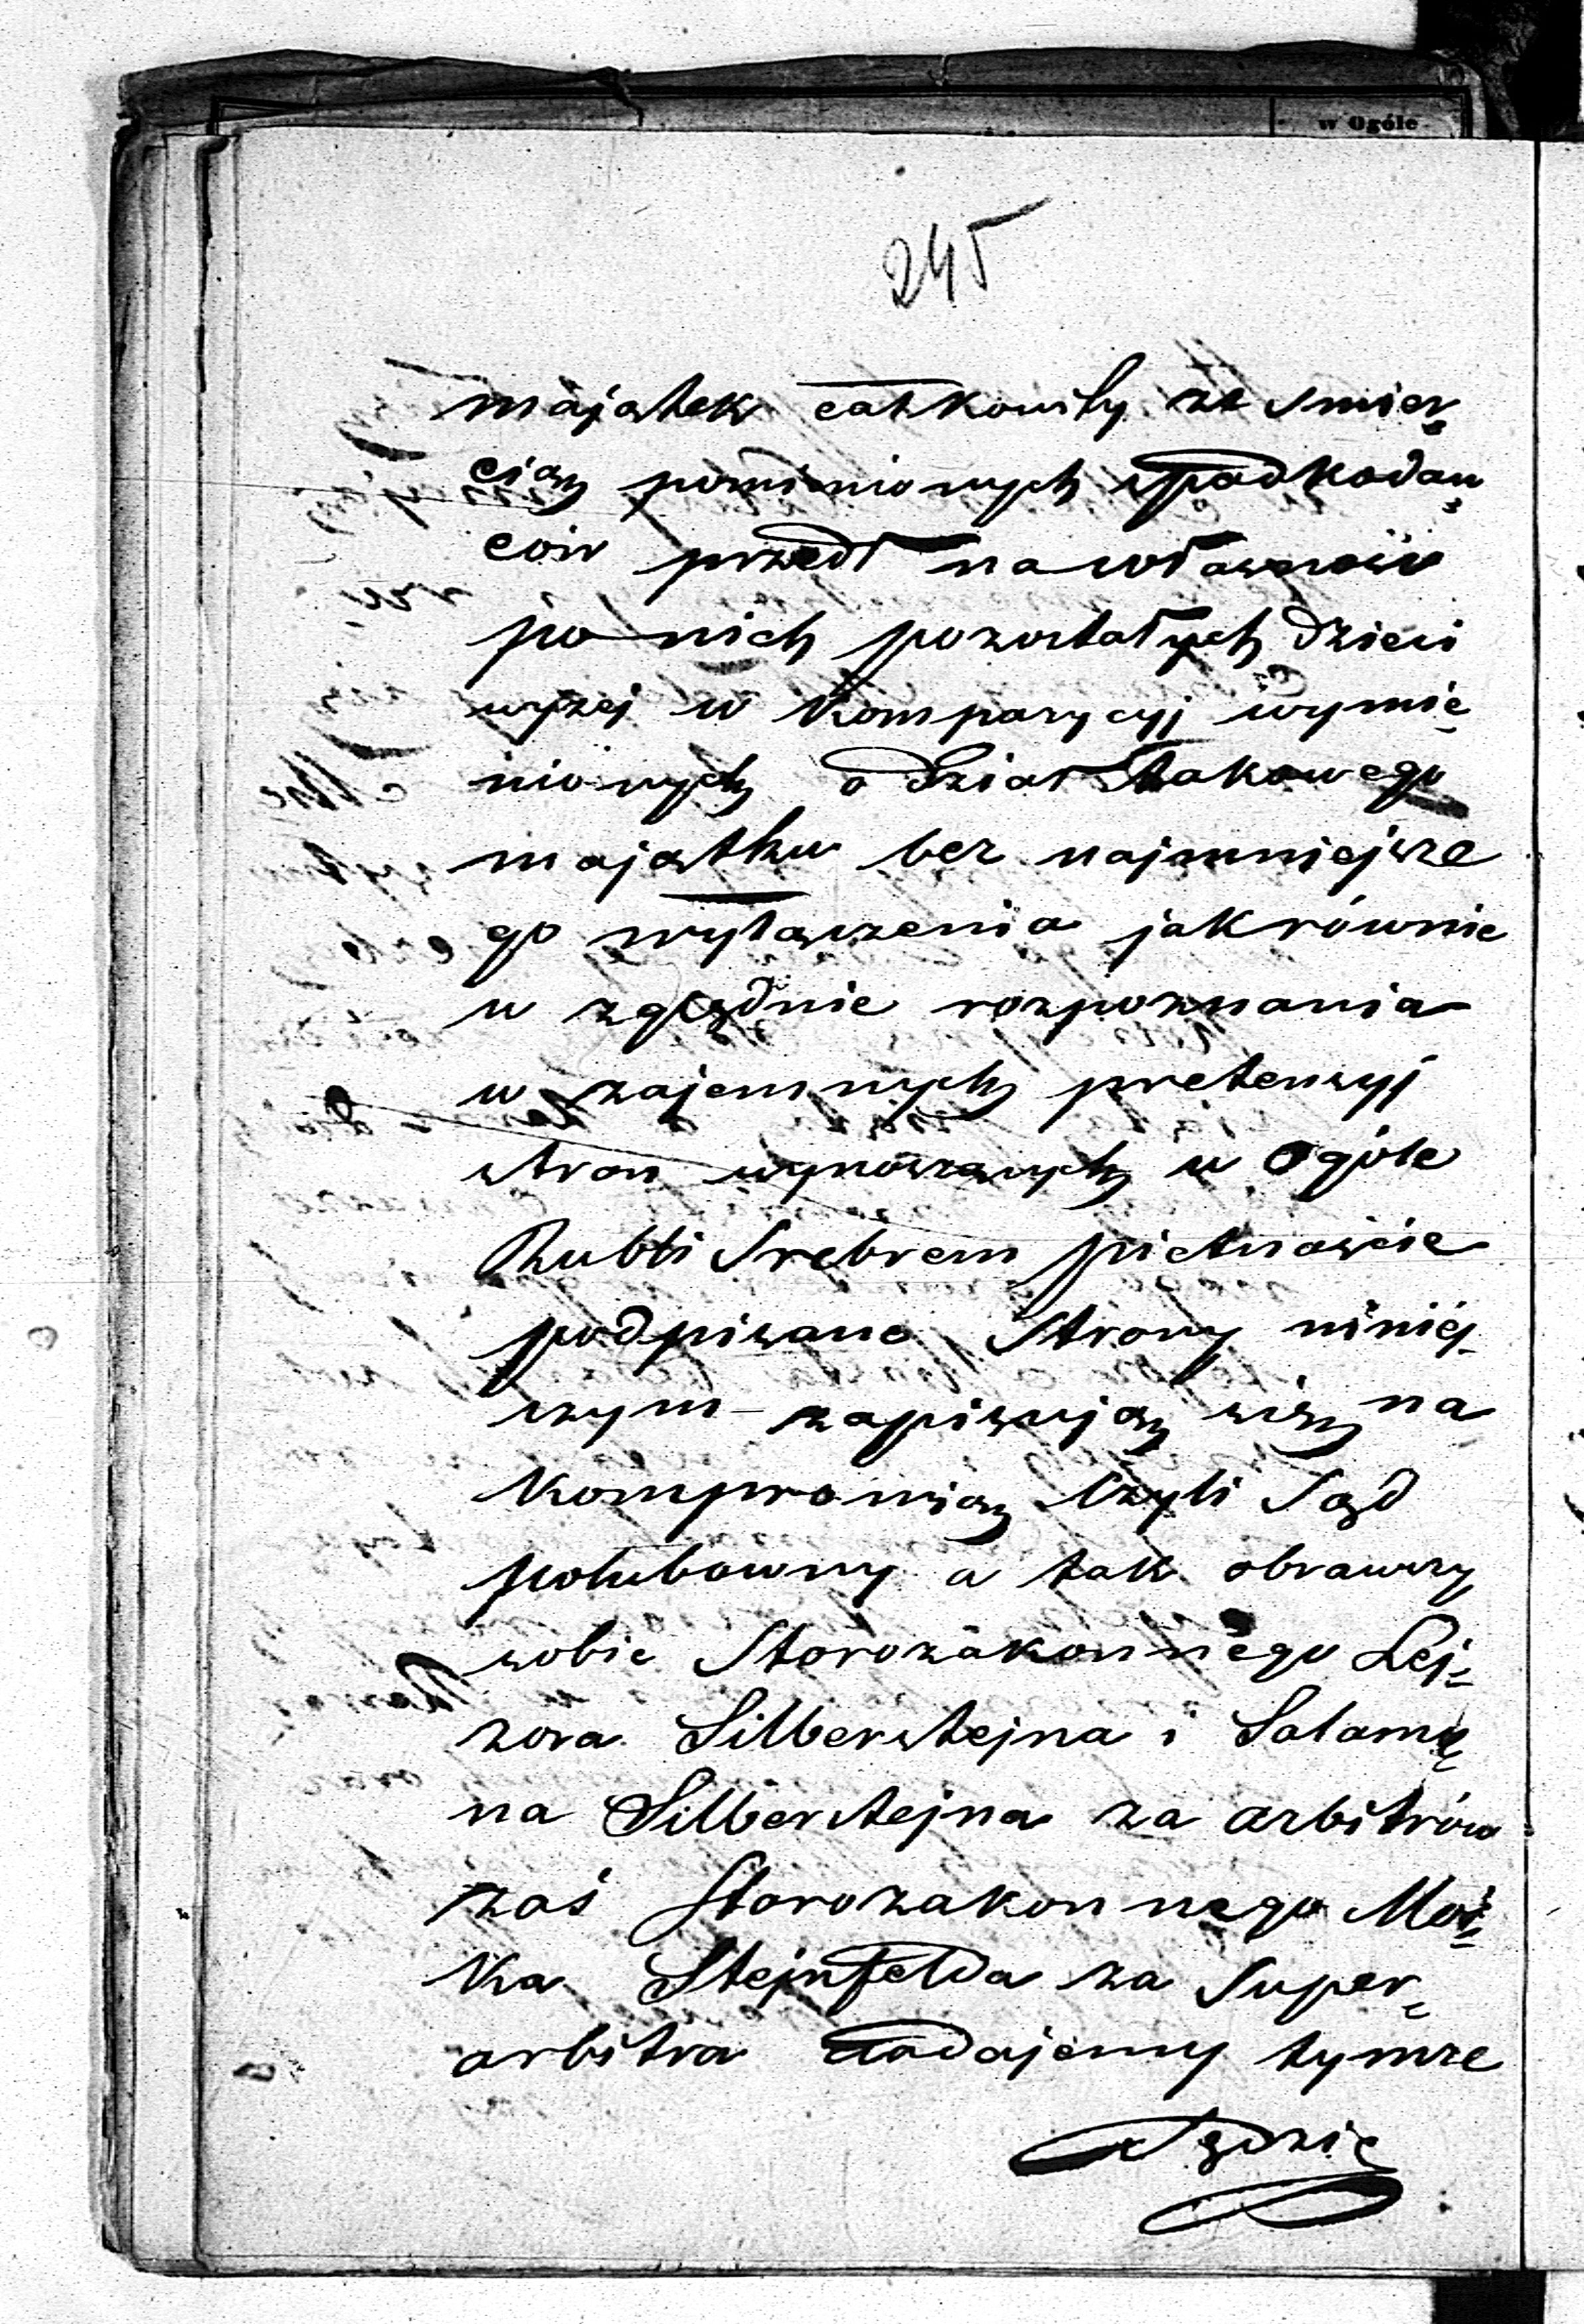 w Ogóle
245
majątek całkowity ze śmier„
cią pomienionych spadkodaw„
ców przedł na własność
po nich pozostałych dzieci
wyżej w Komparycyj wymie„
nionych o dział takowego
majątku bez najmniejsze
go wyłączenia jak równie
w zględnie rozpoznania
w zajemnych pretensyj
stron wynoszących w Ogóle
Rubli Srebrem pietnaście
podpisane Strony niniej„
szym zapisują się na
Kompromis czyli Sąd
polubowny a tak obrawszy
sobie Starozakonnego Lej„
zora Silbersztejna i Salamo„
na Silbersztejna za arbitrów
zaś Starozakonnego Moś„
ka Stejnfelda za Super„
arbitra nadajemy tymże
Sędzie